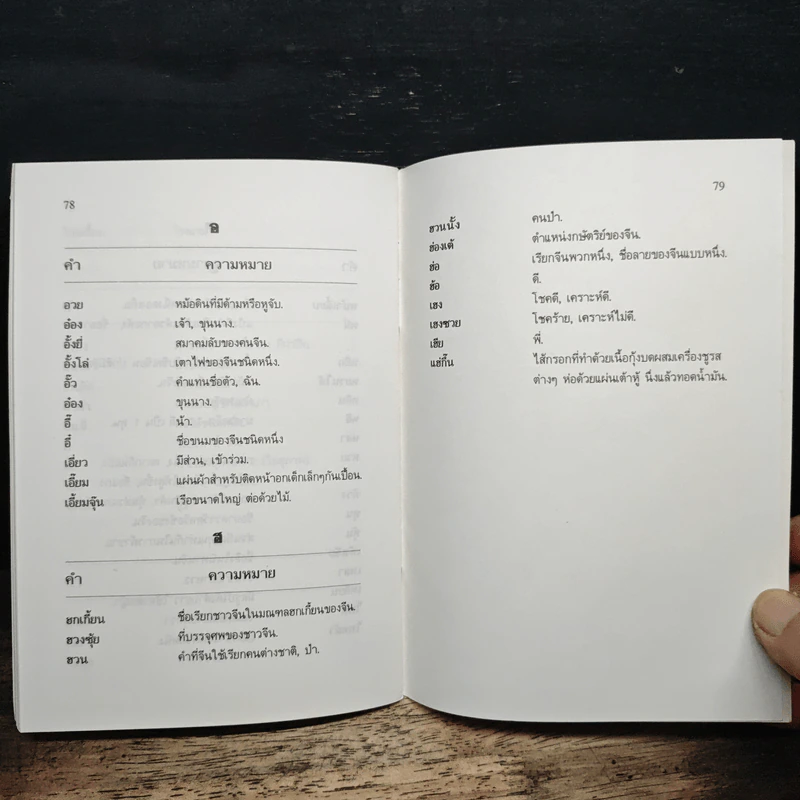 78
อ
คำ ความหมาย
อวย หม้อดินที่มีด้ามหรือหูจับ.
อ๋อง เจ้า, ขุนนาง.
อั้งยี่ สมาคมลับของคนจีน.
อั้งโล่ เตาไฟของจีนชนิดหนึ่ง.
อั๊ว คำแทนชื่อตัว, ฉัน.
อ๋อง ขุนนาง.
อี๊ น้า.
อี๋ ชื่อขนมของจีนชนิดหนึ่ง
เอี่ยว มีส่วน, เข้าร่วม.
เอี๊ยม แผ่นผ้าสำหรับติดหน้าอกเด็กเล็กๆกันเปื้อน.
เอี้ยมจุ๊น เรือขนาดใหญ่ ต่อด้วยไม้.
ฮ
คำ ความหมาย
ฮกเกี้ยน ชื่อเรียกชาวจีนในมณฑลฮกเกี้ยนของจีน.
ฮวงซุ้ย ที่บรรจุศพของชาวจีน.
ฮวน คำที่จีนใช้เรียกคนต่างชาติ, ป่า.
79
ฮวนนั้ง คนป่า.
ฮ่องเต้ ตำแหน่งกษัตริย์ของจีน.
ฮ่อ เรียกจีนพวกหนึ่ง, ชื่อลายของจีนแบบหนึ่ง.
ฮ้อ ดี.
เฮง โชคดี, เคราะห์ดี.
เฮงซวย โชคร้าย, เคราะห์ไม่ดี.
เฮีย พี่.
แฮ่กึ๊น ไส้กรอกที่ทำด้วยเนื้อกุ้งบดผสมเครื่องชูรส
ต่างๆ ห่อด้วยแผ่นเต้าหู้ นึ่งแล้วทอดน้ำมัน.